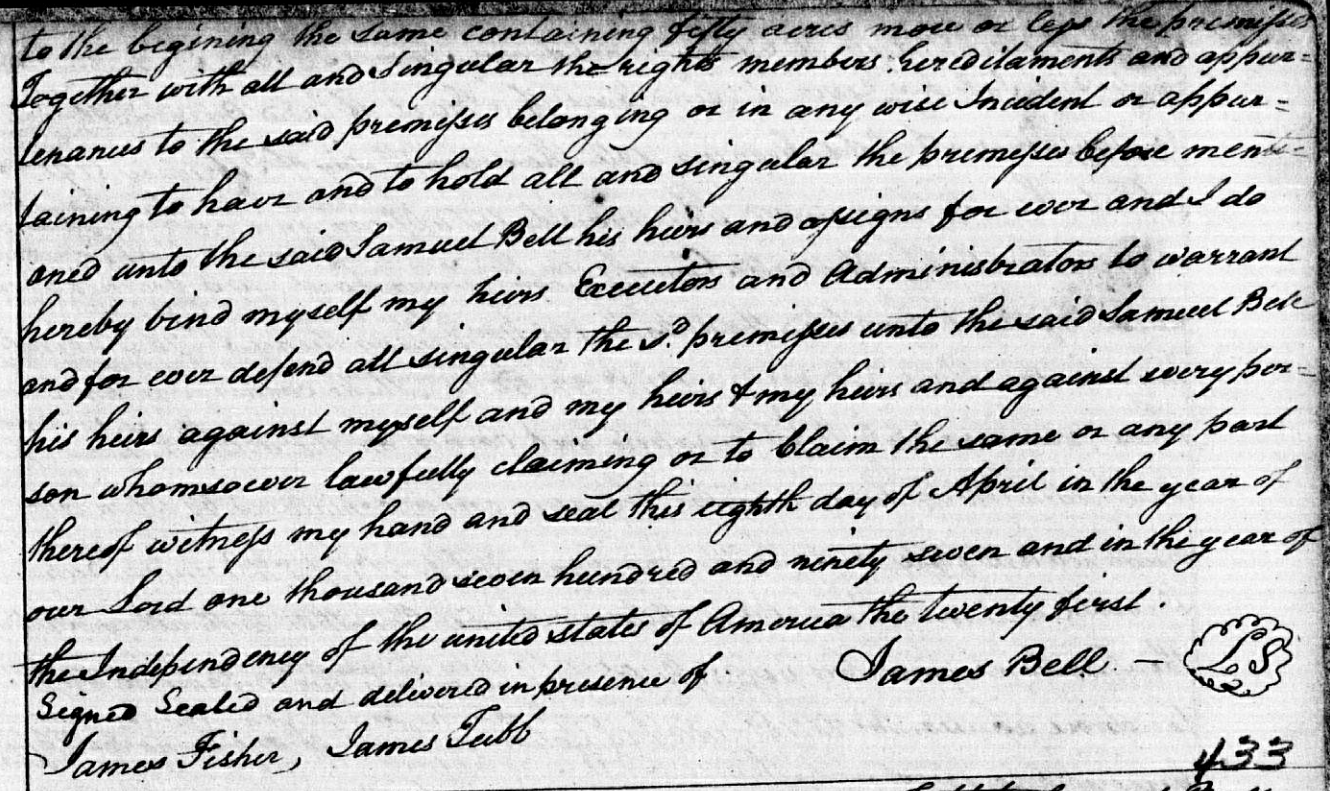 to the begining the same containing fifty acres more or less the premisses
Together with all and Singular the rights members hereditaments and appur=
tenances to the said premisses belonging or in any wise Incident or appur=
taining to have and to hold all and singular the premisses before menti=
oned unto the said Samuel Bell his heirs and assigns for ever and I do
hereby bind myself my heirs Executors and Administrators to warrant
and for ever defend all singular the sd. premisses unto the said Samuel Bell
his heirs against myself and my heirs & my heirs and against every per=
son whomsoever lawfully claiming or to Claim the same or any part
thereof witness my hand and seal this eighth day of April in the year of
our Lord one thousand seven hundred and ninety seven and in the year of
the Independency of the united states of America the twenty first.
Signed Sealed and delivered in presence of James Bell — LS
James Fisher, James Tubb
433